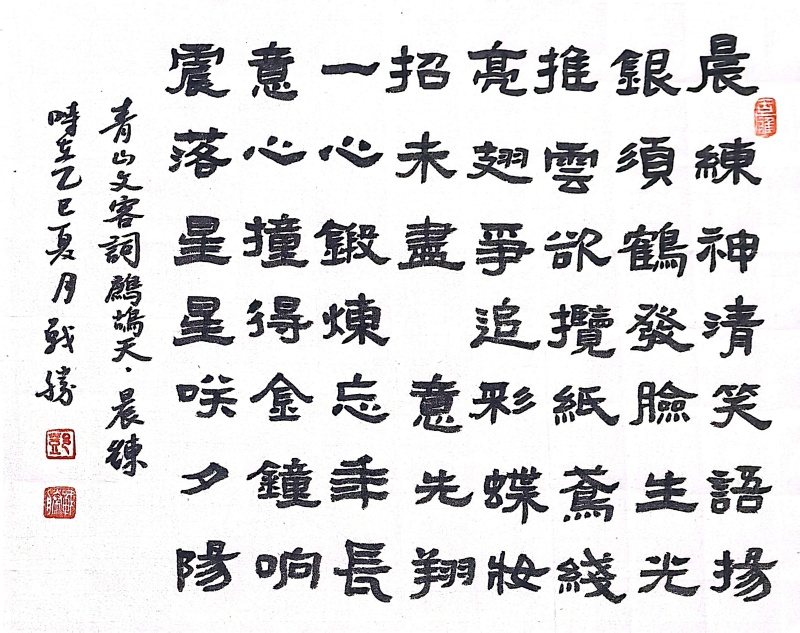 晨練神清笑語揚
銀須鶴發臉生光
推雲欲攬紙鳶綫
亮翅爭追彩蝶妝
招未盡 意先翔
一心鍛煉忘年長
意心撞得金鐘响
震落星星咲夕陽
青山文客詞鷓鴣天·晨練
時在乙巳夏月戰勝